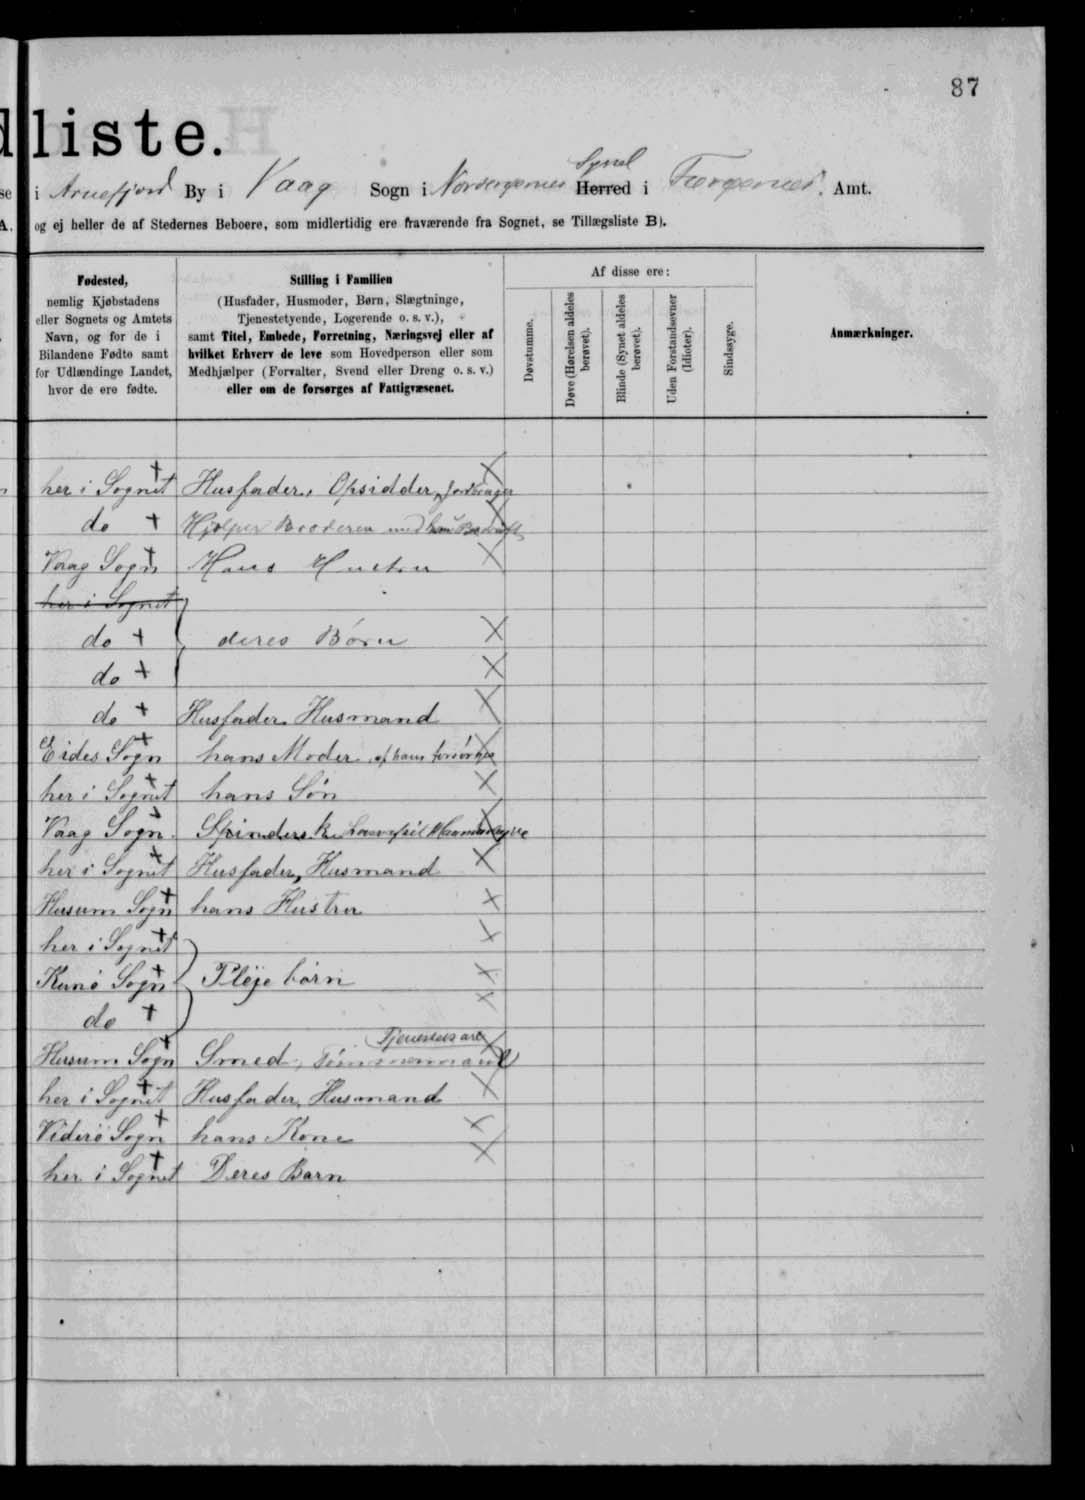 87
dliste.
se i Arnefjord By i Vaag Sogn i Norderøernes Syssel Herred i Færøernes Amt.
A. og ej heller de af Stedernes Beboere, som midlertidig ere fraværende fra Sognet, se Tillægsliste B).
Fødested,
nemlig Kjøbstadens
eller Sognets og Amtets
Navn, og for de i
Bilandene Fødte samt
for Udlændinge Landet,
hvor de ere fødte.
Stilling i Familien
(Husfader, Husmoder, Børn, Slægtninge,
Tjenestetyende, Logerende o. s. v.),
samt Titel, Embede, Forretning, Næringsvej eller af
hvilket Erhverv de leve som Hovedperson eller som
Medhjælper (Forvalter, Svend eller Dreng o. s. v.)
eller om de forsørges af Fattigvæsenet.
Af disse ere:
Døvstumme.
Døve (Hørelsen aldeles
berøvet).
Blinde (Synet aldeles
berøvet).
Uden Forstandsevner
(Idioter).
Sindssyge.
Anmærkninger.
her i Sognet Husfader, Opsidder, Jordbruger
do Hjelper Broderen med hans Bedrift
Vaag Sogn Hans Hustru
her i Sognet
do deres Börn
do
do Husfader Husmand
Eides Sogn hans Moder af ham forsörges
her i Sognet hans Sön
Vaag Sogn Spinderske
her i Sognet Husfader, Husmand
Husum Sogn hans Hustru
her i Sognet
Kunö Sogn Pleje börn
do
Husum Sogn Smed, Tömmermand
her i Sognet Husfader, Husmand
Viderö Sogn hans Kone
her i Sognet Deres Barn